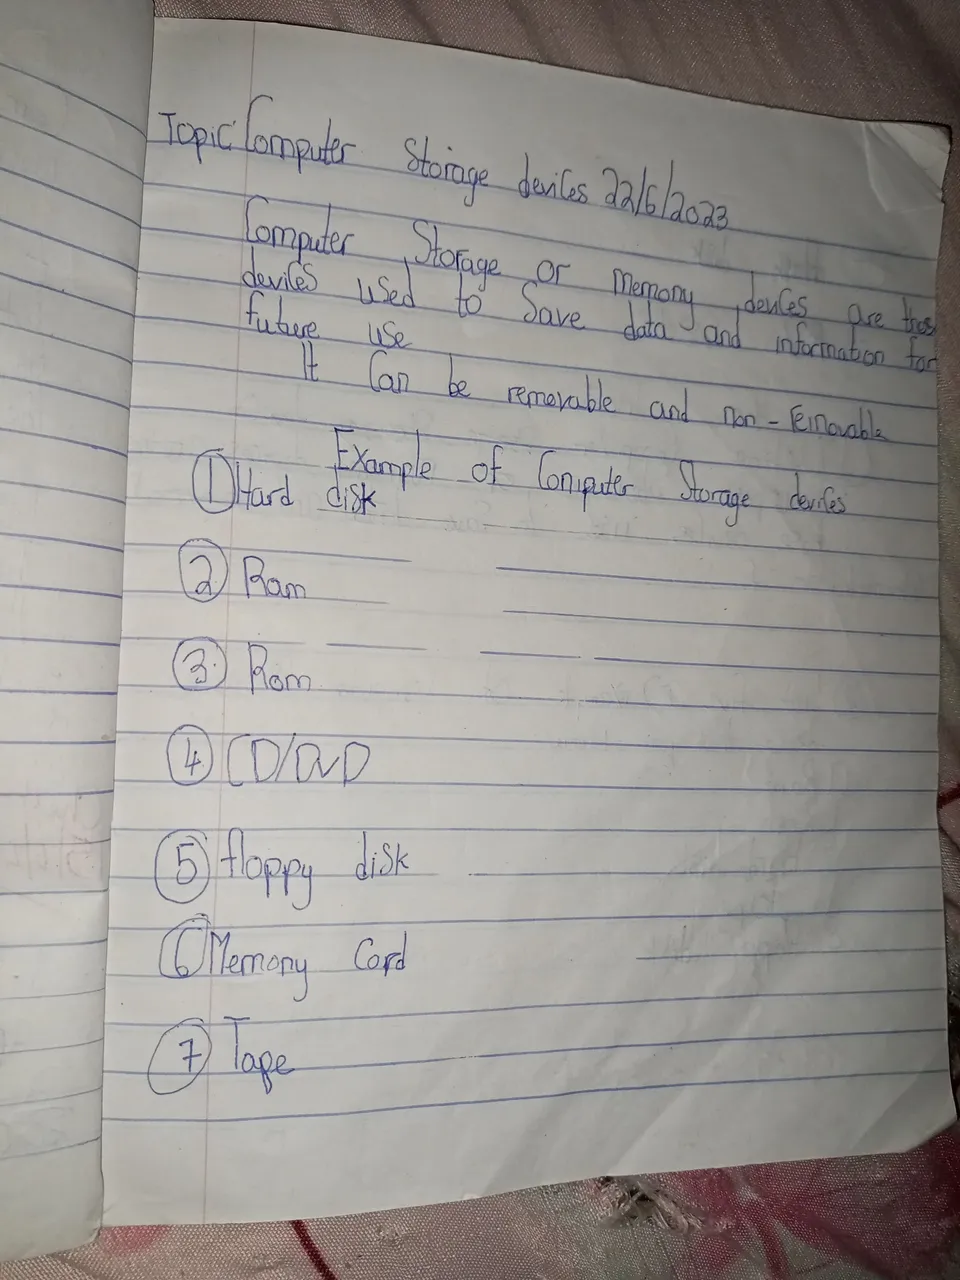 Topic Computer Storage devices 22/6/2023
Computer Storage or memory devices are thos
devices used to Save data and information for
future use
It Can be removable and non-removable
Example of Computer Storage devices
① Hard disk
② Ram
③ Rom
④ CD/DVD
⑤ floppy disk
⑥ Memory Card
⑦ Tape